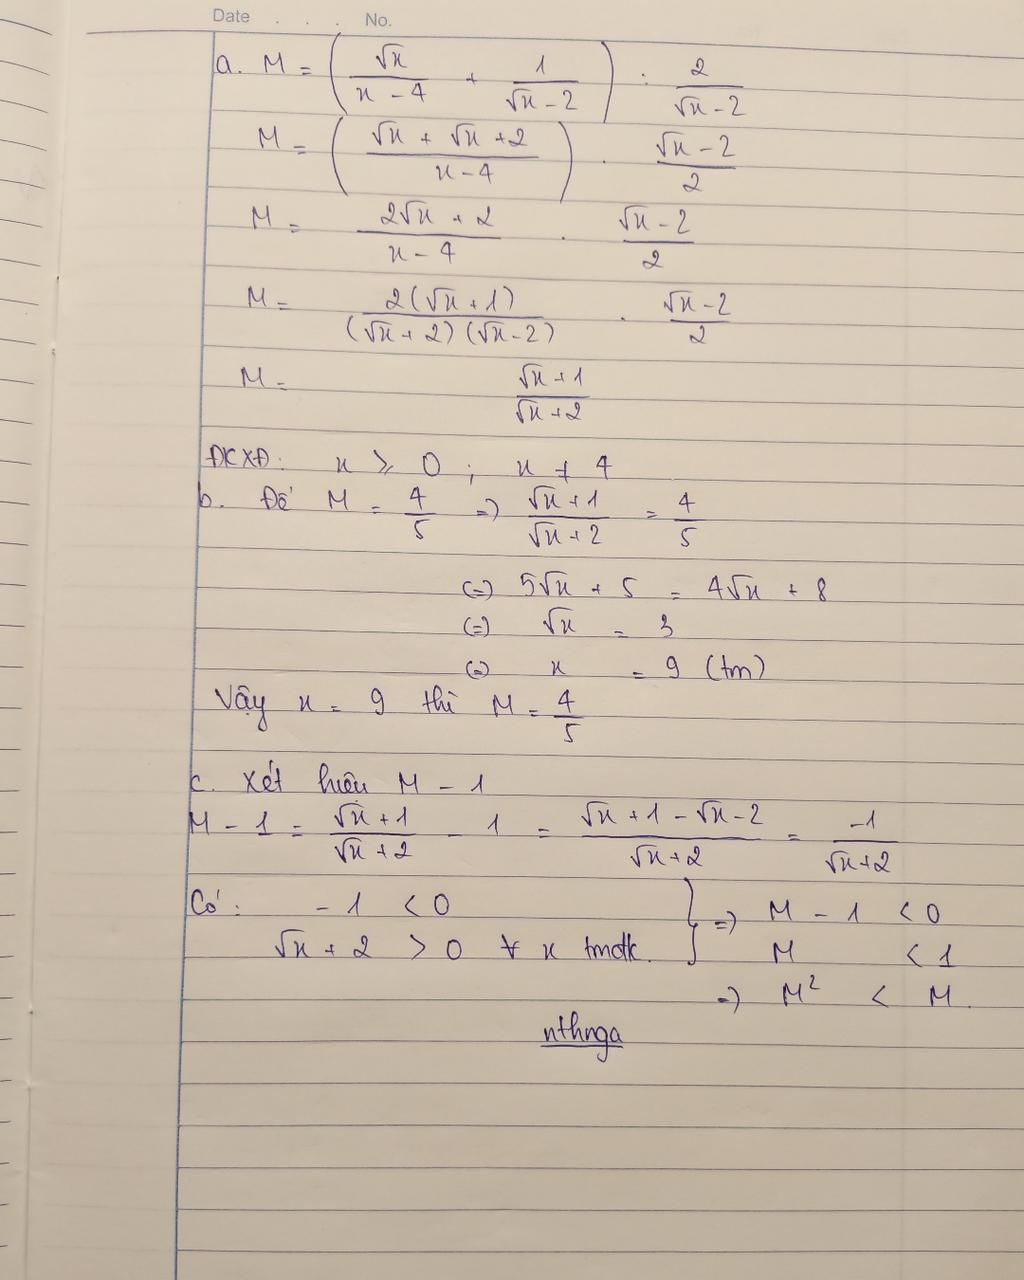 Date . . . No.
a. M = ( √x / (x - 4) + 1 / (√x - 2) ) : 2 / (√x - 2)
M = ( (√x + √x + 2) / (x - 4) ) . (√x - 2) / 2
M = (2√x + 2) / (x - 4) . (√x - 2) / 2
M = 2(√x + 1) / (√x + 2)(√x - 2) . (√x - 2) / 2
M = (√x + 1) / (√x + 2)
ĐKXĐ: x ≥ 0 ; x ≠ 4
b. Để M = 4/5 => (√x + 1) / (√x + 2) = 4/5
(=) 5√x + 5 = 4√x + 8
(=) √x = 3
(=) x = 9 (tm)
Vậy x = 9 thì M = 4/5
c. Xét hiệu M - 1
M - 1 = (√x + 1) / (√x + 2) - 1 = (√x + 1 - √x - 2) / (√x + 2) = -1 / (√x + 2)
Có: - 1 < 0 } => M - 1 < 0
√x + 2 > 0 ∀ x tmđk. M < 1
=> M² < M.
nthnga